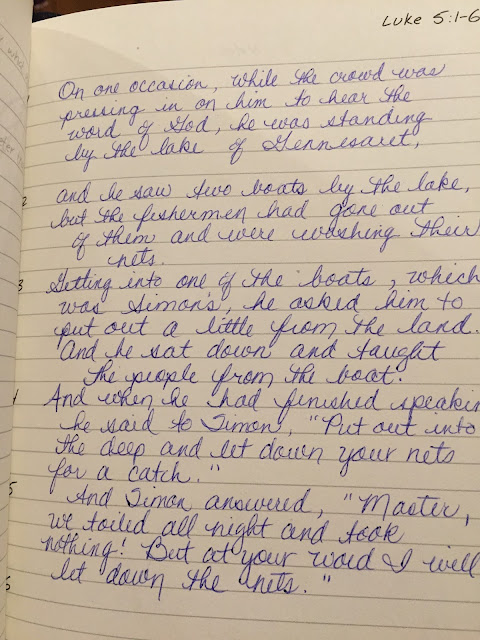 Luke 5:1-6
On one occasion, while the crowd was
pressing in on him to hear the
word of God, he was standing
by the lake of Gennesaret,
2 and he saw two boats by the lake,
but the fishermen had gone out
of them and were washing their
nets.
3 Getting into one of the boats, which
was Simon's, he asked him to
put out a little from the land.
And he sat down and taught
the people from the boat.
4 And when he had finished speakin
he said to Simon, "Put out into
the deep and let down your nets
for a catch."
5 And Simon answered, "Master,
we toiled all night and took
nothing! But at your word I will
let down the nets."
5